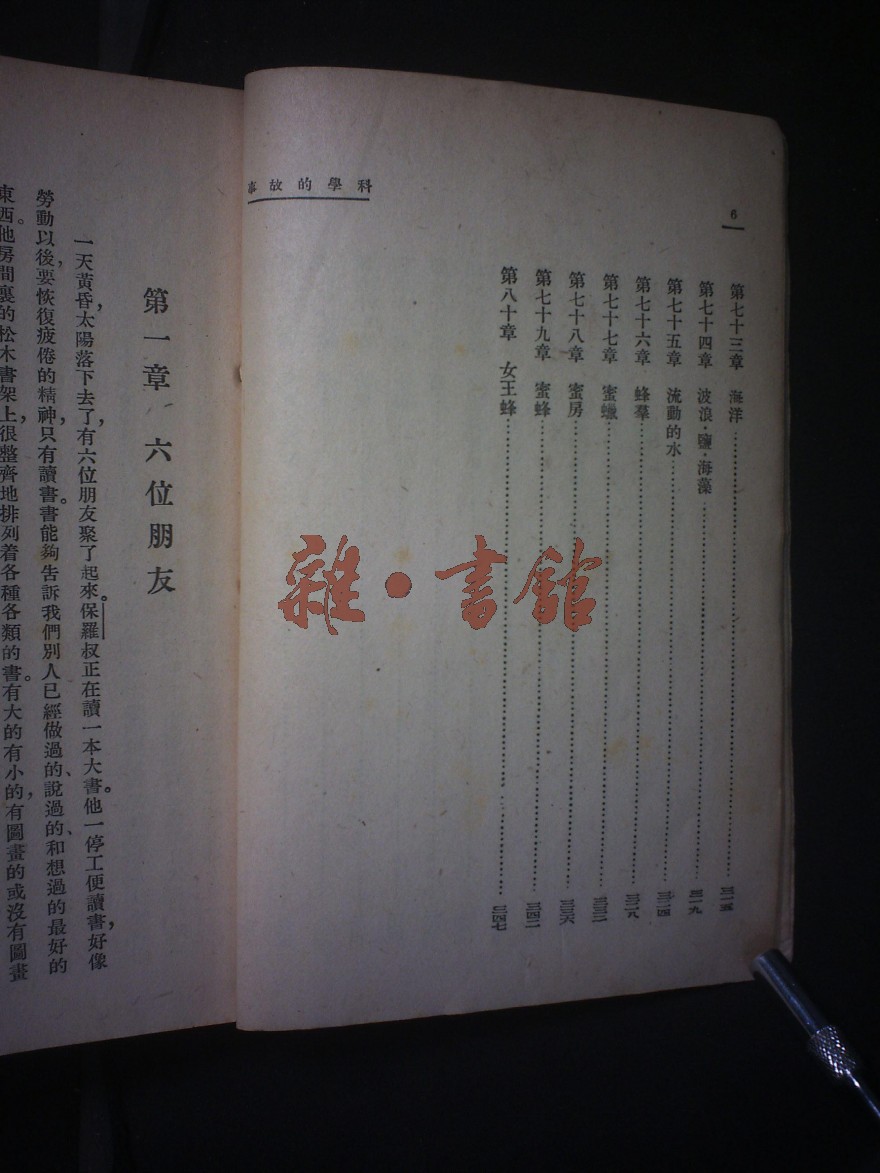 科學的故事
6
第七十三章 海洋……三一五
第七十四章 波浪・鹽・海藻……三一九
第七十五章 流動的水……三二四
第七十六章 蜂羣……三二八
第七十七章 蜜蠟……三三二
第七十八章 蜜房……三三六
第七十九章 蜜蜂……三四二
第八十章 女王蜂……三四七
雜・書館
第一章 六位朋友
一天黃昏，太陽落下去了，有六位朋友聚了起來。保羅叔正在讀一本大書。他一停工便讀書，好像
勞動以後，要恢復疲倦的精神，只有讀書。書能夠告訴我們別人已經做過的、說過的、和想過的最好的
東西。他房間裏的松木書架上，很整齊地排列着各種各類的書。有大的，有小的，有圖畫的或沒有圖畫